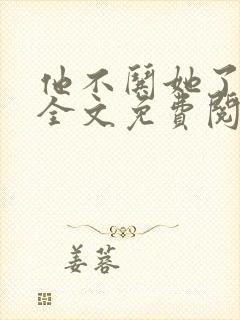 他不關她了
全文免費閱
姜蓉